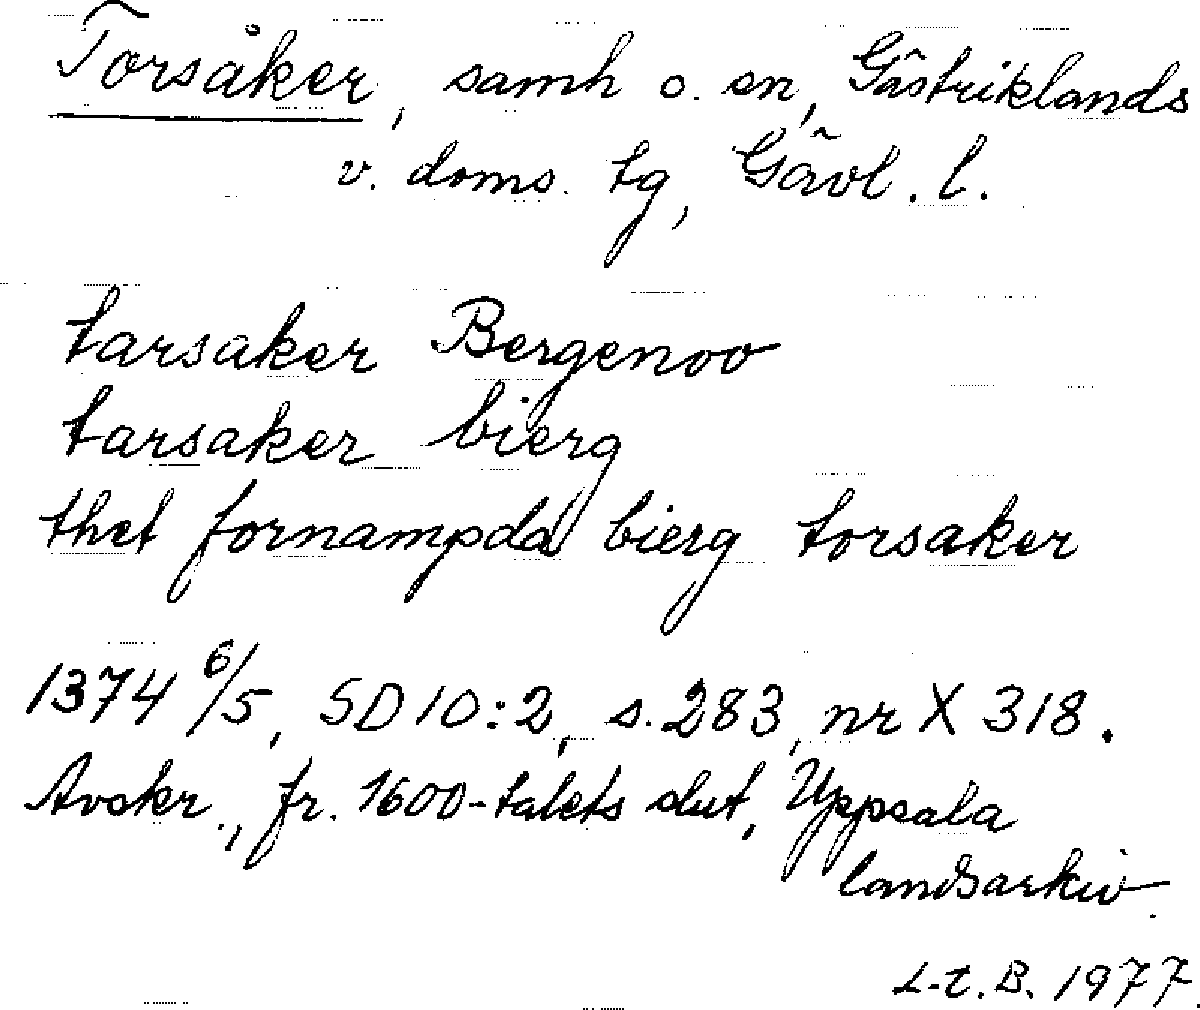 Torsåker, samh o. sn, Gästriklands
v. doms. tg, Gävl. l.
tarsaker Bergenoo
tarsaker bierg
thet fornampda bierg torsaker
1374 6/5, SD 10:2, s. 283, nr X 318.
Avskr., fr. 1600-talets slut, Uppsala
landsarkiv.
L-E.B. 1977.